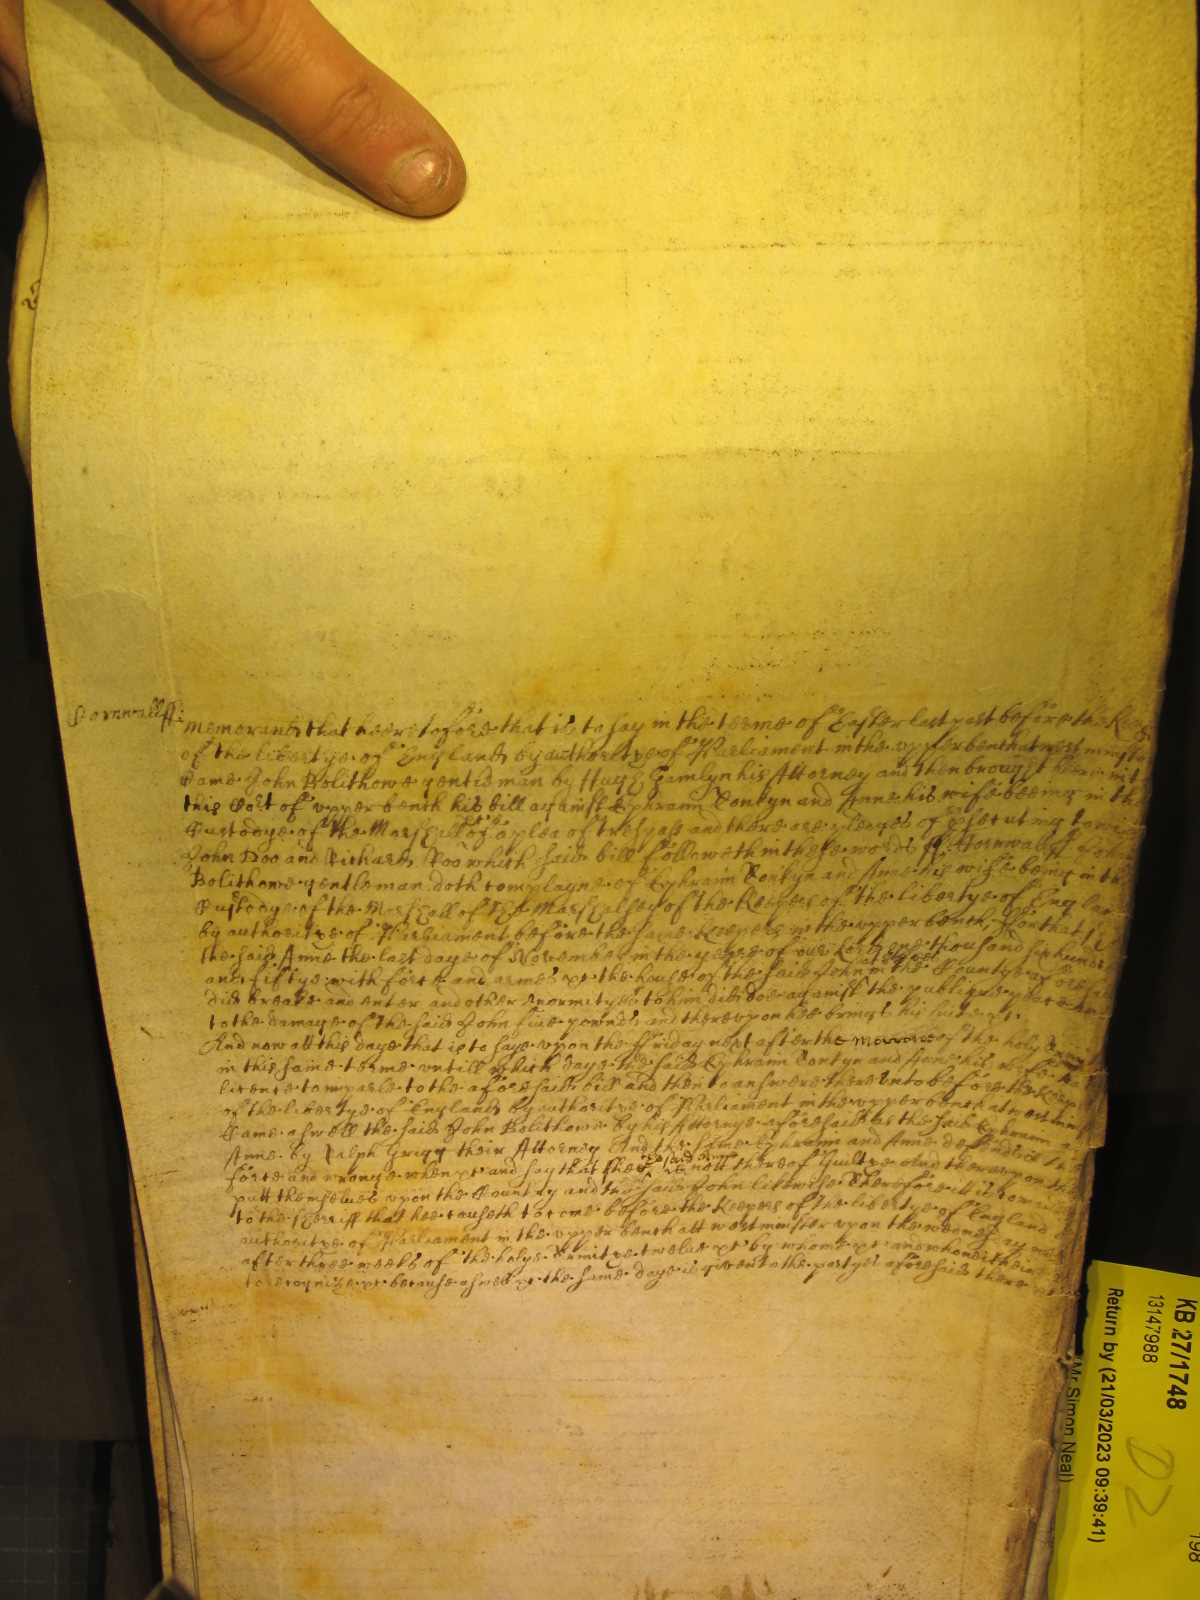 Cornwall ss:
Memorand that heeretofore that is to say in the terme of Easter last past before the
of the libertye of England by authoritye of Parliament in the upper bench at
Came John Bolithowe gentleman by Hugh Gamlyn his Attorney and then brought heere
this Cort of upper bench his bill against Ephraim Conkyn and Anne his wife beeing in the
Custodye of the Marshall &c of a plea of trespass and there are pledges of
John Doo and Richard Roo which said bill followeth in these words ss. Cornwall ss John
Bolithowe gentleman doth complayne of Ephraim Conkyn and Anne his wife being in the
Custodye of the Marshall of the Marshalsey of the Keepers of the libertye of England
by authoritye of Parliament before the same Keepers in the upper bench, ffor that
the said Anne the last daye of November in the yeare of our Lord one thousand six hundred
and fiftye with force and armes &c the house of the said John in the Countye aforesaid
did breake and enter and other enormityes to him did doe against the publique peace
to the damage of the said John five pownds and thereupon hee brings his suite &c.
And now att this daye that is to saye upon the ffriday next after the of the holy
in this same terme untill which daye the said Ephraim Conkyn and Anne his wife
licence to imparle to the aforesaid bill and then to answere thereunto before the Keepers
of the libertye of England by authoritye of Parliament in the upper bench at
Came aswell the said John Bolithowe by his Attornye aforesaid as the said Ephraim
Anne by Ralph Grigg their Attorney And the same Ephraim and Anne defend the
force and wronge when &c and say that the said Anne is nott thereof Guiltye And thereupon the
putt themselves upon the Country and the said John likewise Therefore itt is
to the sherriff that hee causeth to come before the Keepers of the libertye of England
authoritye of Parliament in the upper bench att westminster upon the wednesday
after three weeks of the holye Trinitye twelve &c by whome &c and who neither
to recognize &c because aswell &c the same daye is given to the partyes aforesaid there
KB 27/1748
13147988
Return by (21/03/2023 09:39:41)
(Mr Simon Neal)
D2
198